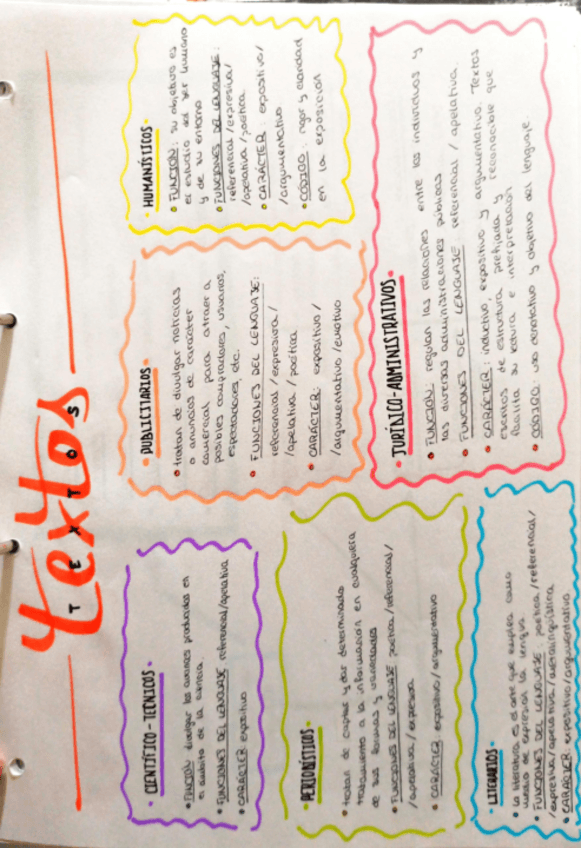 Textos
TEXTOS
• CIENTÍFICO-TÉCNICOS •
• FUNCIÓN: divulgar los avances producidos en
el ámbito de la ciencia.
• FUNCIONES DEL LENGUAJE referencial/apelativa
• CARÁCTER expositivo
• PERIODÍSTICOS •
• tratan de captar y dar determinado
tratamiento a la información en cualquiera
de sus formas y variedades
• FUNCIONES DEL LENGUAJE poética/referencial/
/apelativa/expresiva
• CARÁCTER expositivo/argumentativo
• LITERARIOS •
• La literatura es el arte que emplea como
medio de expresión la lengua.
• FUNCIONES DEL LENGUAJE poética/referencial/
/expresiva/apelativa/metalingüística
• CARÁCTER expositivo/argumentativo
• PUBLICITARIOS •
• tratan de divulgar noticias
o anuncios de carácter
comercial para atraer a
posibles compradores, usuarios,
espectadores, etc.
• FUNCIONES DEL LENGUAJE:
referencial/expresiva/
/apelativa/poética
• CARÁCTER: expositivo/
/argumentativo/emotivo
• HUMANÍSTICOS •
• FUNCIÓN: su objetivo es
el estudio del ser humano
y de su entorno
• FUNCIONES DEL LENGUAJE:
referencial/expresiva/
/apelativa/poética
• CARÁCTER: expositivo/
/argumentativo
• CÓDIGO: rigor y claridad
en la exposición
• JURÍDICO-ADMINISTRATIVOS •
• FUNCIÓN: regulan las relaciones entre los individuos y
las diversas administraciones públicas
• FUNCIONES DEL LENGUAJE referencial/apelativa.
• CARÁCTER: inductivo, expositivo y argumentativo. Textos
escritos de estructura prefijada y reconocible que
facilita su lectura e interpretación
• CÓDIGO: uso denotativo y objetivo del lenguaje.